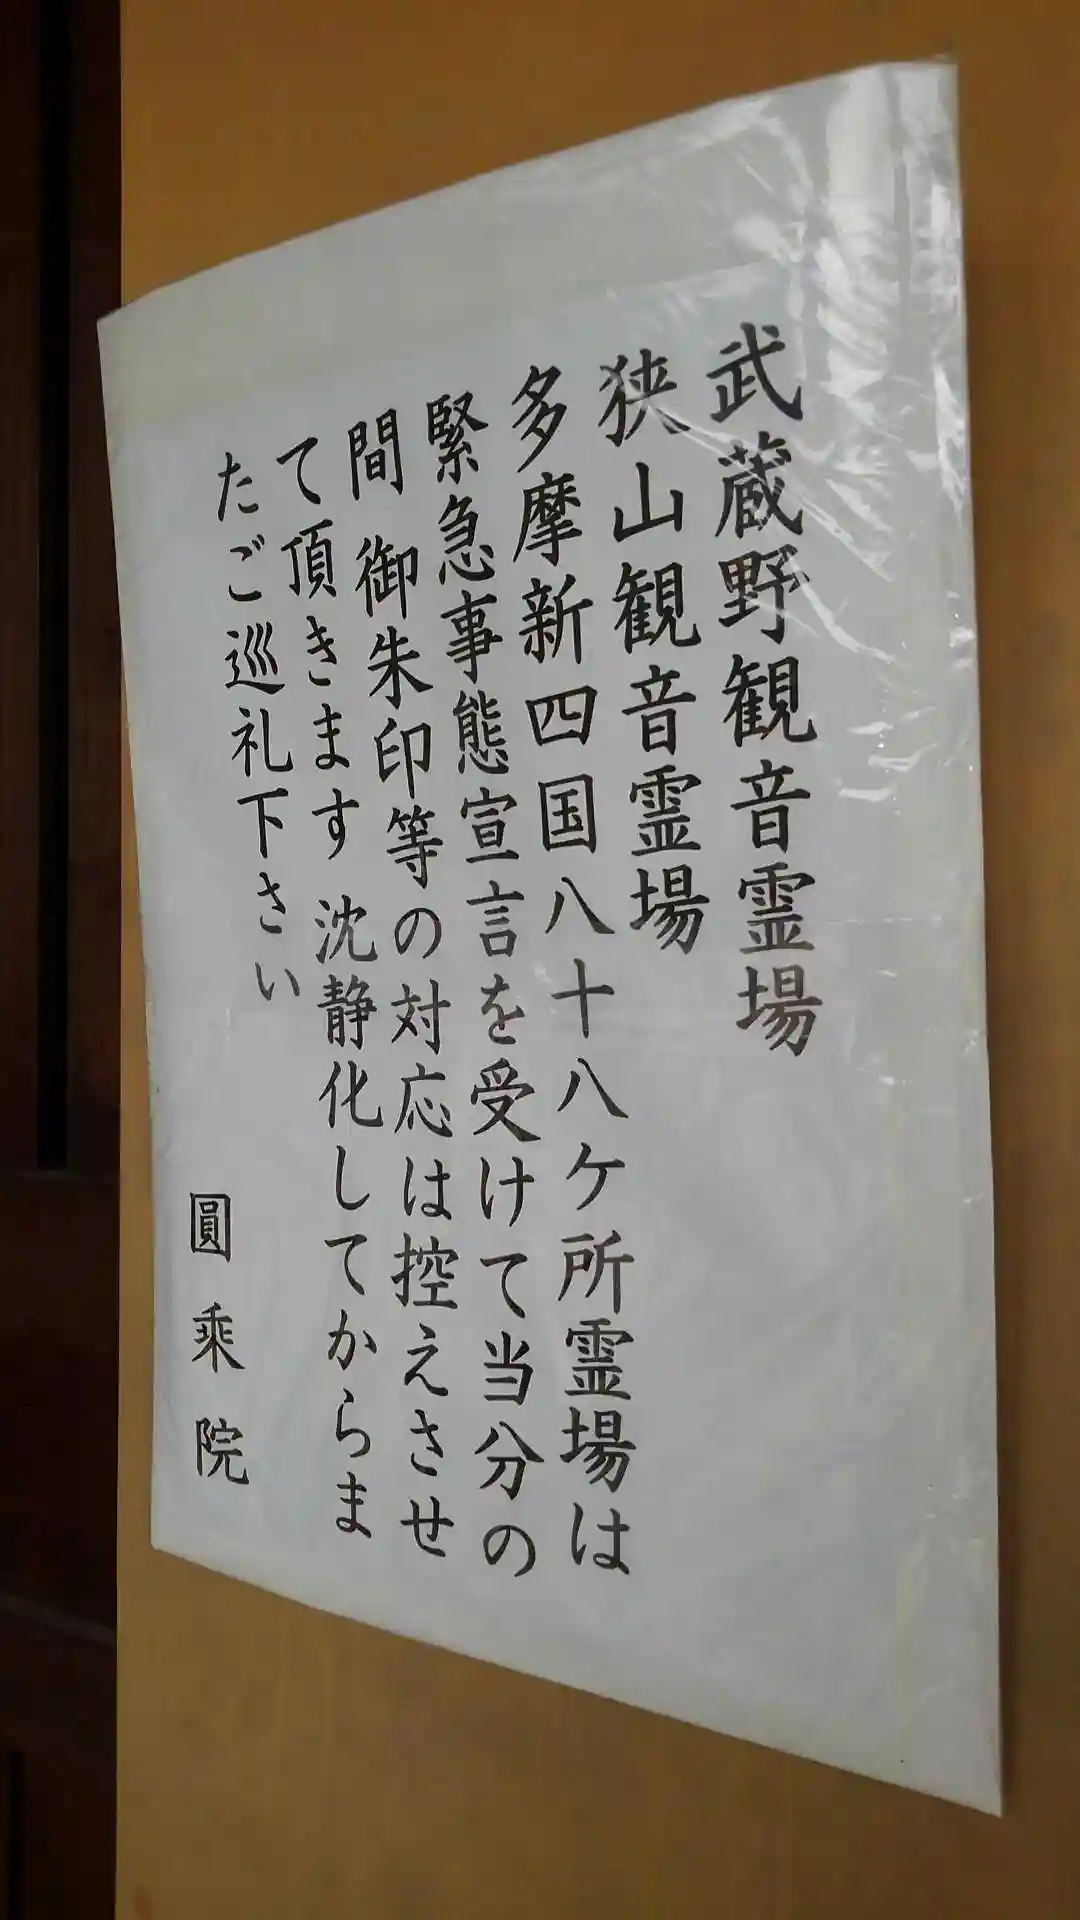 武蔵野観音霊場
狭山観音霊場
多摩新四国八十八ケ所霊場は
緊急事態宣言を受けて当分の
間 御朱印等の対応は控えさせ
て頂きます 沈静化してからま
たご巡礼下さい
圓乘院